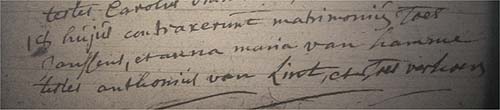 testes Carolus
19 hujus contraxerunt matrimoniū Joes
Janssens, et anna maria van hamme
testes anthoniús van Lint, et Joes verhoeven